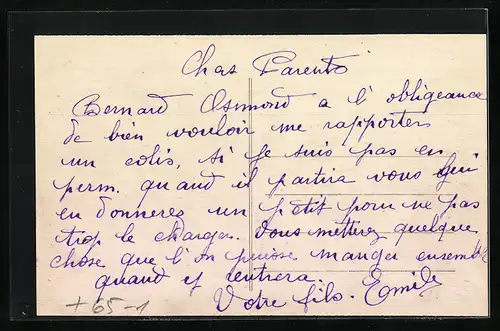 Chers Parents
Bernard Osmond a l'obligeance
de bien vouloir me rapporter
un colis, si je suis pas en
perm. quand il partira vous lui
en donnerez un petit pour ne pas
trop le charger. Vous mettrez quelque
chose que l'on puisse manger ensemble
quand il rentrera.
Votre fils. Emile
+65-1